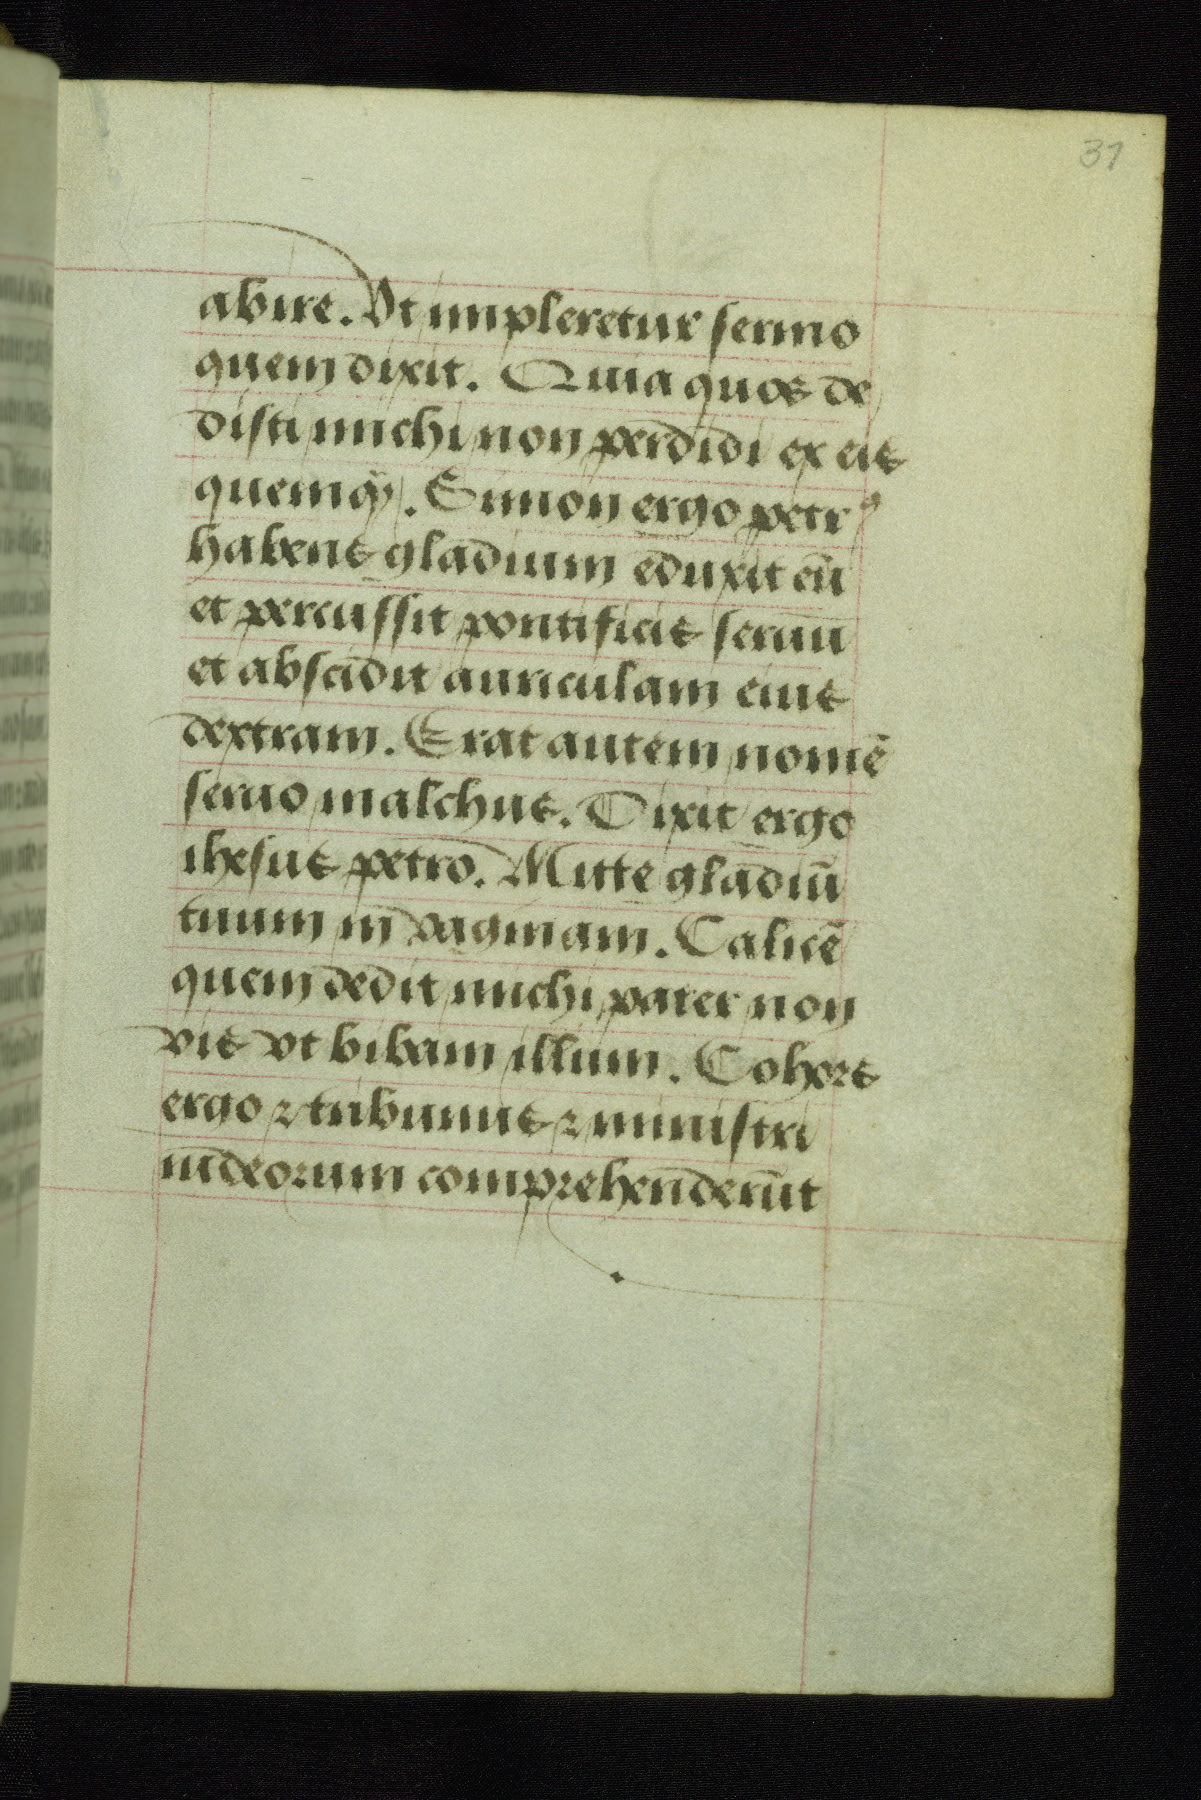 31
abire. Vt impleretur sermo
quem dixit. Quia quos de
disti michi non perdidi ex eis
quemq̃. Simon ergo petrꝰ
habens gladium eduxit eū
et percussit pontificis seruū
et abscidit auriculam eius
dextram. Erat autem nomē
seruo malchus. Dixit ergo
ihesus petro. Mitte gladiū
tuum in vaginam. Calicē
quem dedit michi pater non
vis vt bibam illum. Cohors
ergo ⁊ tribunus ⁊ ministri
iudeorum comprehenderūt